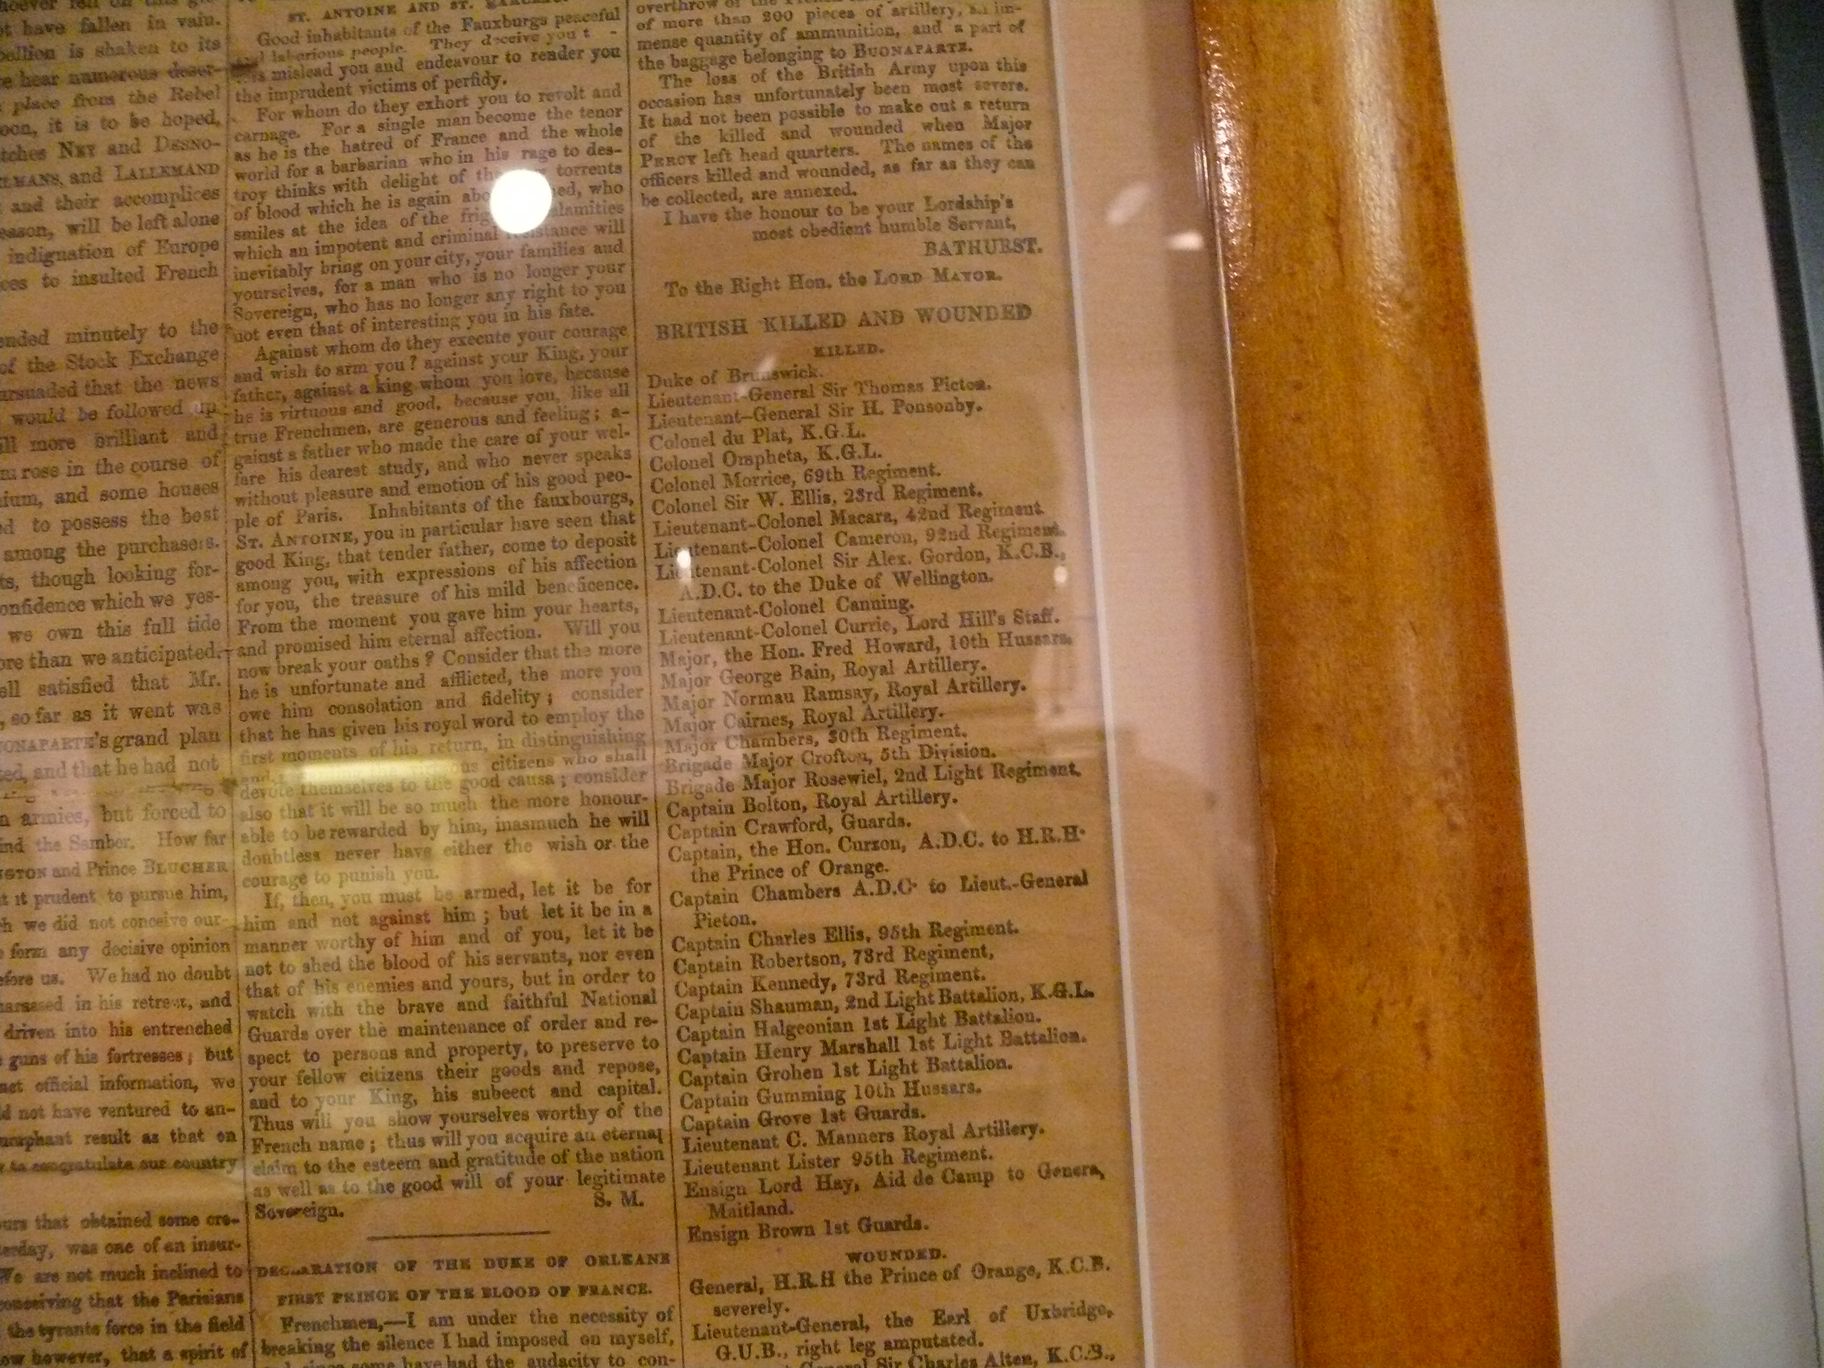 hoever fell on this
ot have fallen in vain.
bellion is shaken to its
e hear numerous deser-
place from the Rebel
oon, it is to be hoped,
tches NEY and DESNO-
LMANS, and LALLEMAND
and their accomplices
eason, will be left alone
indignation of Europe
ces to insulted French
ended minutely to the
of the Stock Exchange
arsuaded that the news
would be followed up
ill more brilliant and
m rose in the course of
ium, and some houses
ed to possess the best
among the purchasers.
ts, though looking for-
onfidence which we yes-
we own this full tide
ore than we anticipated.
ell satisfied that Mr.
, so far as it went was
UONAPARTE's grand plan
ted, and that he had not
n armies, but forced to
ind the Samber. How far
NGTON and Prince BLUCHER
t it prudent to pursue him,
ch we did not conceive our-
form any decisive opinion
efore us. We had no doubt
harassed in his retreat, and
driven into his entrenched
guns of his fortresses; but
act official information, we
ld not have ventured to an-
umphant result as that on
to congratulate our country
ours that obtained some cre-
terday, was one of an insur-
We are not much inclined to
conceiving that the Parisians
the tyrants force in the field
ow however, that a spirit of
ST. ANTOINE AND ST.
Good inhabitants of the Fauxburgs peaceful
laborious people. They deceive you
mislead you and endeavour to render you
the imprudent victims of perfidy.
For whom do they exhort you to revolt and
carnage. For a single man become the tenor
as he is the hatred of France and the whole
world for a barbarian who in his rage to des-
troy thinks with delight of torrents
of blood which he is again who
smiles at the idea of the calamities
which an impotent and criminal resistance will
inevitably bring on your city, your families and
yourselves, for a man who is no longer your
Sovereign, who has no longer any right to you
not even that of interesting you in his fate.
Against whom do they execute your courage
and wish to arm you? against your King, your
father, against a king whom you love, because
he is virtuous and good, because you, like all
true Frenchmen, are generous and feeling; a-
gainst a father who made the care of your wel-
fare his dearest study, and who never speaks
without pleasure and emotion of his good peo-
ple of Paris. Inhabitants of the fauxbourgs,
ST. ANTOINE, you in particular have seen that
good King, that tender father, come to deposit
among you, with expressions of his affection
for you, the treasure of his mild beneficence.
From the moment you gave him your hearts,
and promised him eternal affection. Will you
now break your oaths? Consider that the more
he is unfortunate and afflicted, the more you
owe him consolation and fidelity; consider
that he has given his royal word to employ the
first moments of his return, in distinguishing
and citizens who shall
devote themselves to the good causa; consider
also that it will be so much the more honour-
able to be rewarded by him, inasmuch he will
doubtless never have either the wish or the
courage to punish you.
If, then, you must be armed, let it be for
him and not against him; but let it be in a
manner worthy of him and of you, let it be
not to shed the blood of his servants, nor even
that of his enemies and yours, but in order to
watch with the brave and faithful National
Guards over the maintenance of order and re-
spect to persons and property, to preserve to
your fellow citizens their goods and repose,
and to your King, his subeect and capital.
Thus will you show yourselves worthy of the
French name; thus will you acquire an eternal
claim to the esteem and gratitude of the nation
as well as to the good will of your legitimate
Sovereign. S. M.
DECLARATION OF THE DUKE OF ORLEANS
FIRST PRINCE OF THE BLOOD OF FRANCE.
Frenchmen,—I am under the necessity of
breaking the silence I had imposed on myself,
since some have had the audacity to con-
overthrow of the
of more than 200 pieces of artillery, an im-
mense quantity of ammunition, and a part of
the baggage belonging to BUONAPARTE.
The loss of the British Army upon this
occasion has unfortunately been most severe.
It had not been possible to make out a return
of the killed and wounded when Major
PERCY left head quarters. The names of the
officers killed and wounded, as far as they can
be collected, are annexed.
I have the honour to be your Lordship's
most obedient humble Servant,
BATHURST.
To the Right Hon. the LORD MAYOR.
BRITISH KILLED AND WOUNDED
KILLED.
Duke of Brunswick.
Lieutenant-General Sir Thomas Picton.
Lieutenant-General Sir H. Ponsonby.
Colonel du Plat, K.G.L.
Colonel Ompheta, K.G.L.
Colonel Morrice, 69th Regiment.
Colonel Sir W. Ellis, 23rd Regiment.
Lieutenant-Colonel Macara, 42nd Regiment.
Lieutenant-Colonel Cameron, 92nd Regiment.
Lieutenant-Colonel Sir Alex. Gordon, K.C.B.,
A.D.C. to the Duke of Wellington.
Lieutenant-Colonel Canning.
Lieutenant-Colonel Currie, Lord Hill's Staff.
Major, the Hon. Fred Howard, 10th Hussars.
Major George Bain, Royal Artillery.
Major Normau Ramsay, Royal Artillery.
Major Cairnes, Royal Artillery.
Major Chambers, 30th Regiment.
Brigade Major Crofton, 5th Division.
Brigade Major Rosewiel, 2nd Light Regiment.
Captain Bolton, Royal Artillery.
Captain Crawford, Guards.
Captain, the Hon. Curzon, A.D.C. to H.R.H.
the Prince of Orange.
Captain Chambers A.D.C. to Lieut.-General
Picton.
Captain Charles Ellis, 95th Regiment.
Captain Robertson, 73rd Regiment,
Captain Kennedy, 73rd Regiment.
Captain Shauman, 2nd Light Battalion, K.G.L.
Captain Halgeonian 1st Light Battalion.
Captain Henry Marshall 1st Light Battalion.
Captain Grohen 1st Light Battalion.
Captain Gumming 10th Hussars.
Captain Grove 1st Guards.
Lieutenant C. Manners Royal Artillery.
Lieutenant Lister 95th Regiment.
Ensign Lord Hay, Aid de Camp to Genera,
Maitland.
Ensign Brown 1st Guards.
WOUNDED.
General, H.R.H the Prince of Orange, K.C.B.
severely.
Lieutenant-General, the Earl of Uxbridge,
G.U.B., right leg amputated.
General Sir Charles Alten, K.C.B.,